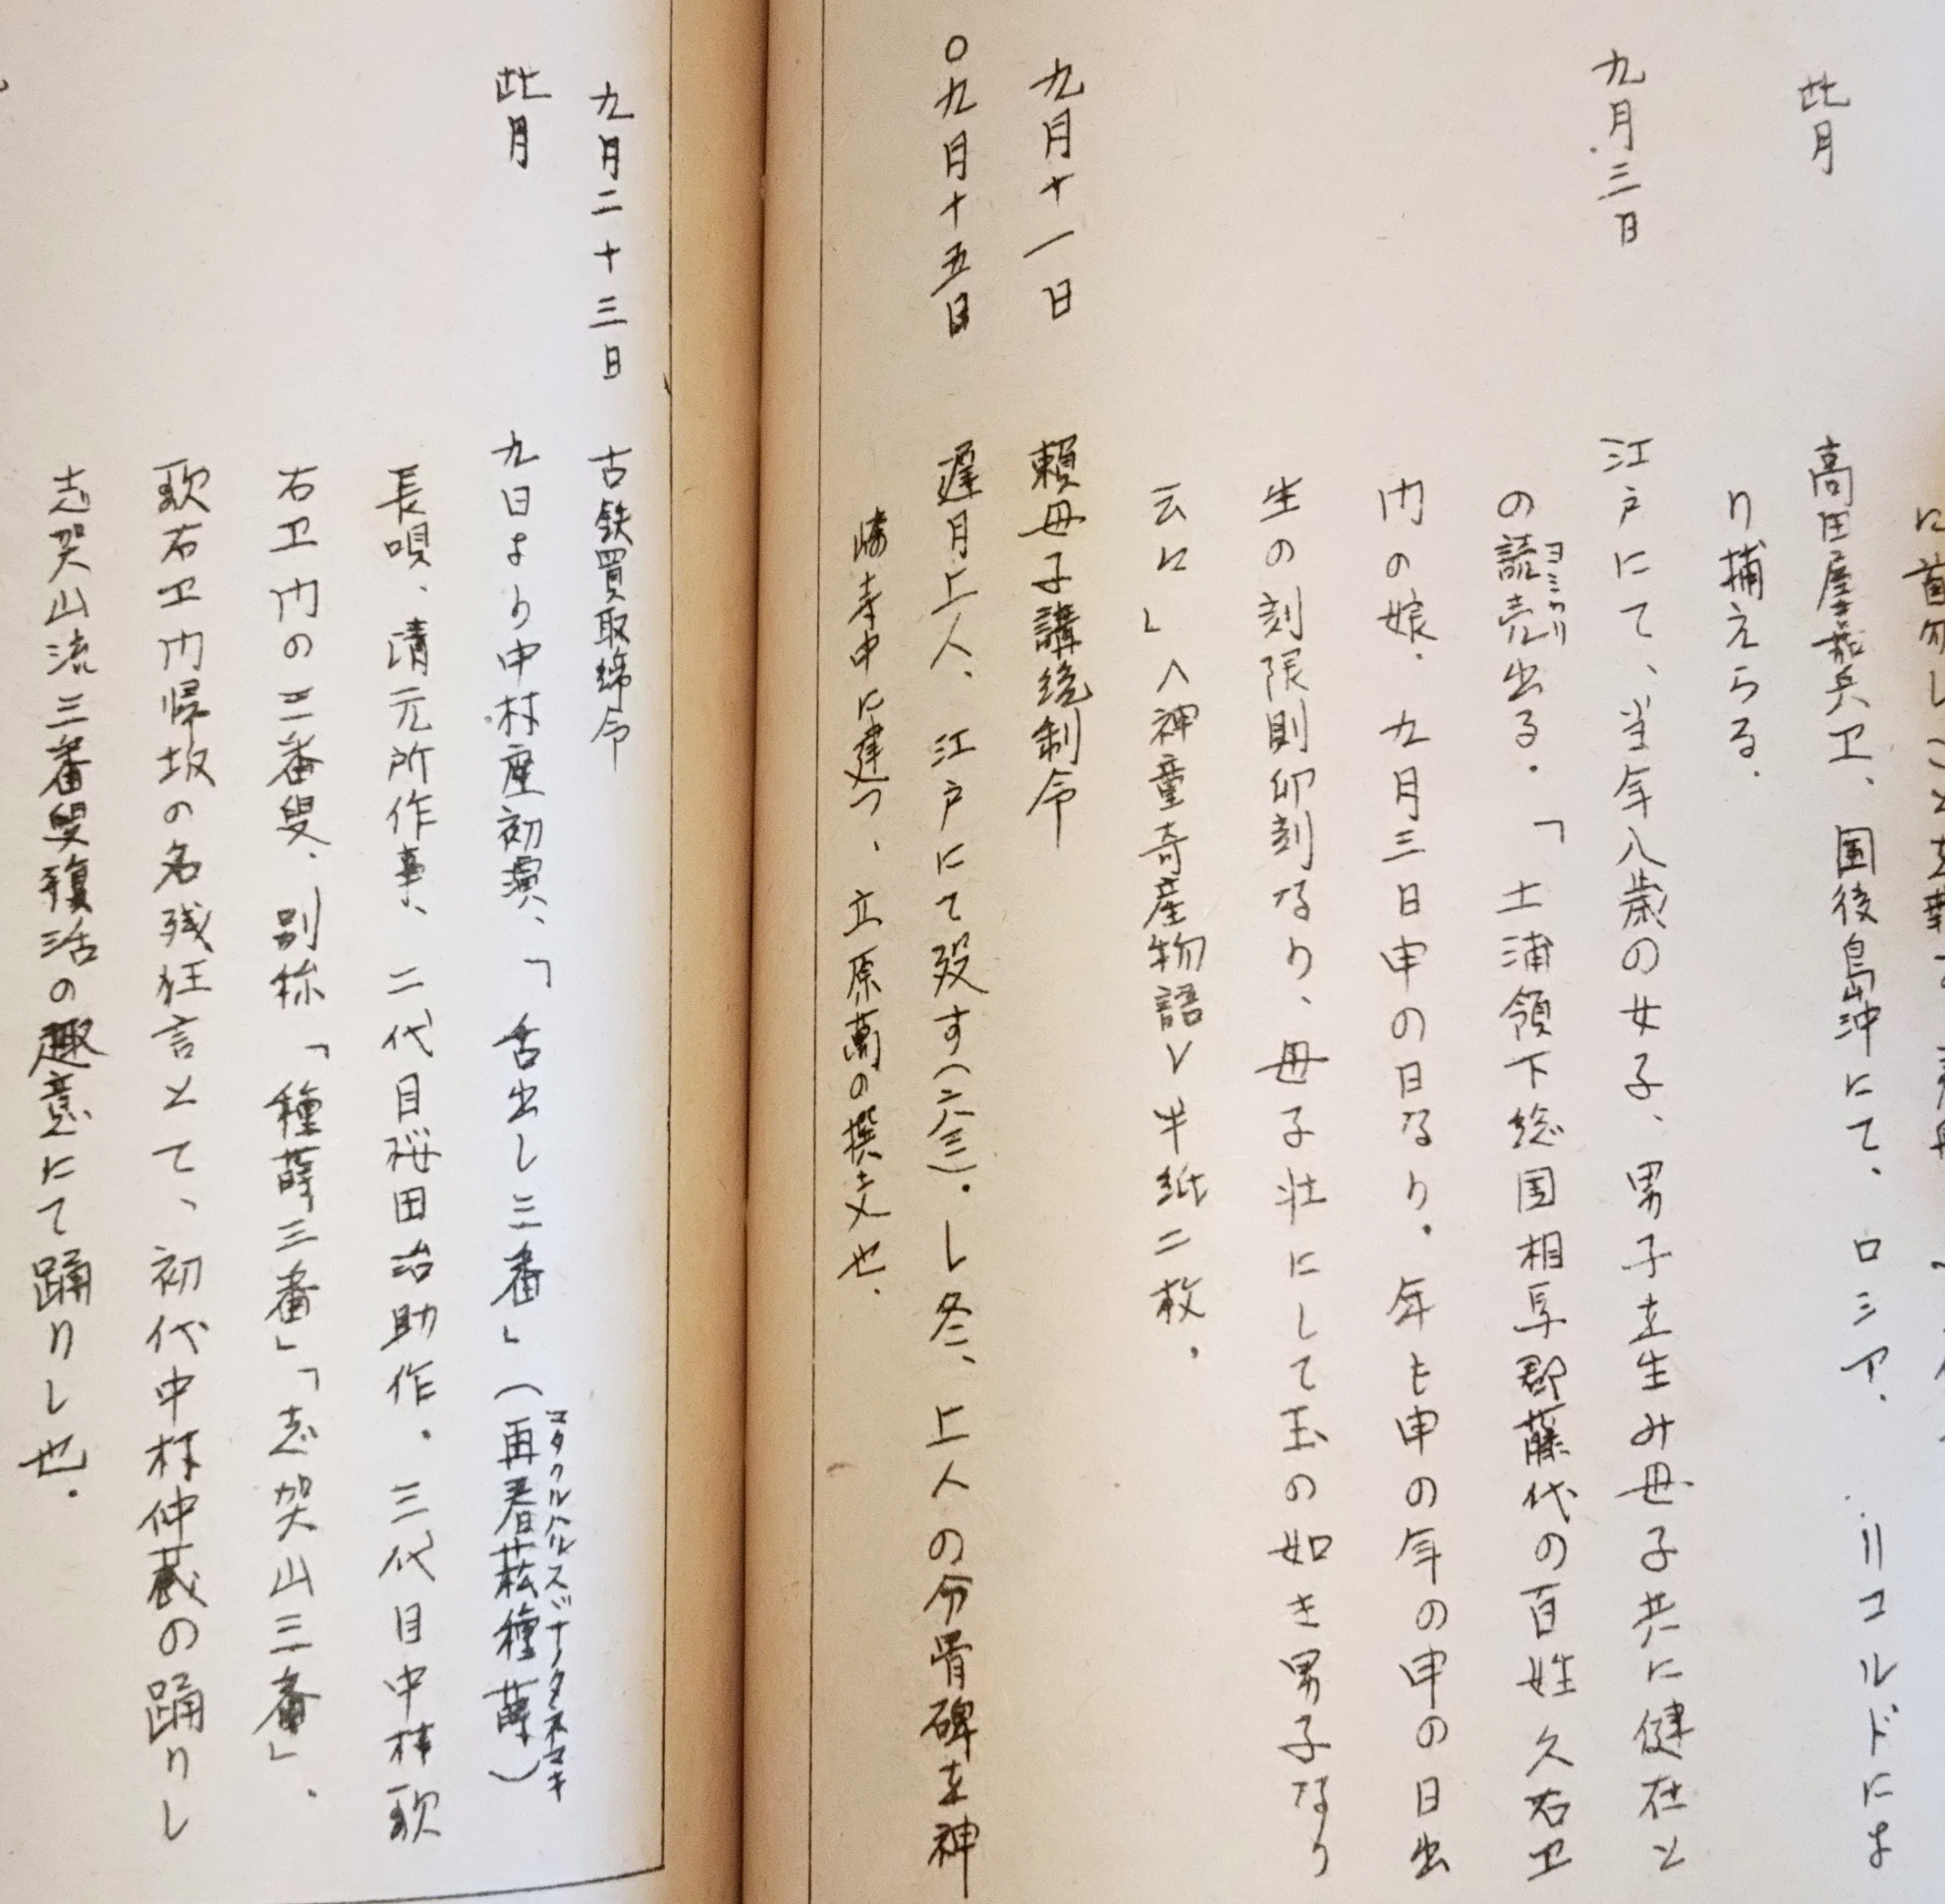 此月　高田屋嘉兵卫、国後島沖にて、ロシア、リコルドによ
り捕えらる.
九月三日　江戸にて、当年八歳の女子、男子を生み母子共に健在と
の読売出る.「土浦領下総国相馬郡藤代の百姓久右卫
ヨミウリ
門の娘. 九月三日申の日なり. 年も申の年の申の日出
生の刻限則卯刻なり、母子壮にして玉の如き男子なり
云々」〈神童奇産物語〉半紙二枚.
九月十一日　頼母子講統制令
○九月十五日　遅月上人、江戸にて歿す(六三). し冬、上人の分骨碑を神
勝寺中に建つ. 立原萬の撰文也.
九月二十三日　古鉄買取締令
此月　九日より中村座初演、「舌出し三番」(再春菘種蒔)
マタクルハルスヾナノタネマキ
長唄、清元所作事、二代目桜田治助作. 三代目中村歌
右卫門の三番叟. 別称「種蒔三番」「志賀山三番」.
歌右卫門帰坂の名残狂言とて、初代中村仲蔵の踊りし
志賀山流三番叟復活の趣意にて踊りし也.